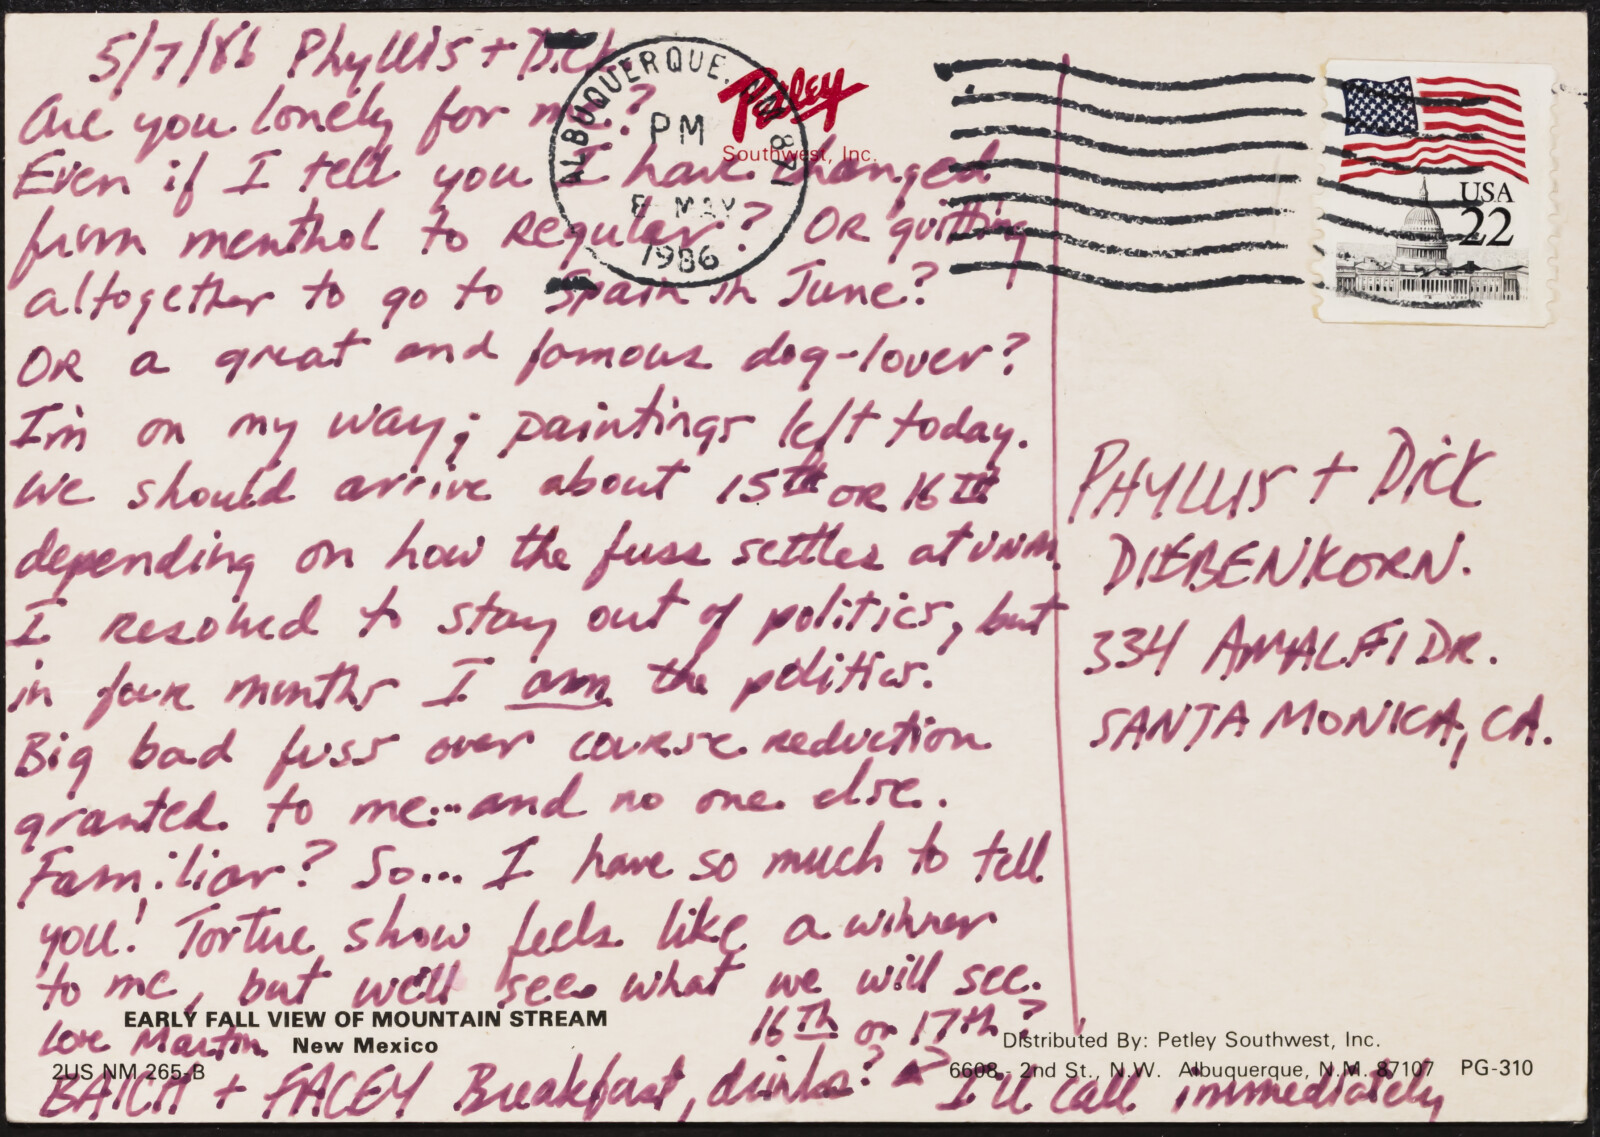 5/7/86 Phyllis + Dick
Are you lonely for me?
Even if I tell you I have changed
from menthol to Regular? OR quitting
altogether to go to Spain in June?
OR a great and famous dog-lover?
I'm on my way; paintings left today.
We should arrive about 15th OR 16th
depending on how the fuss settles at UNM.
I resolved to stay out of politics, but
in four months I am the politics.
Big bad fuss over course reduction
granted to me...and no one else.
Familiar? So... I have so much to tell
you! Tortue show feels like a winner
to me, but we'll see what we will see.
Love Martin
16th or 17th?
BAICH + FACEY Breakfast, drinks? I'll call immediately
EARLY FALL VIEW OF MOUNTAIN STREAM
New Mexico
2US NM 265-B
Petley
Southwest, Inc.
ALBUQUERQUE, NM 871
PM
8 MAY
1986
USA
22
PHYLLIS + DICK
DIEBENKORN.
334 AMALFI DR.
SANTA MONICA, CA.
Distributed By: Petley Southwest, Inc.
6608 - 2nd St., N.W. Albuquerque, N.M. 87107 PG-310